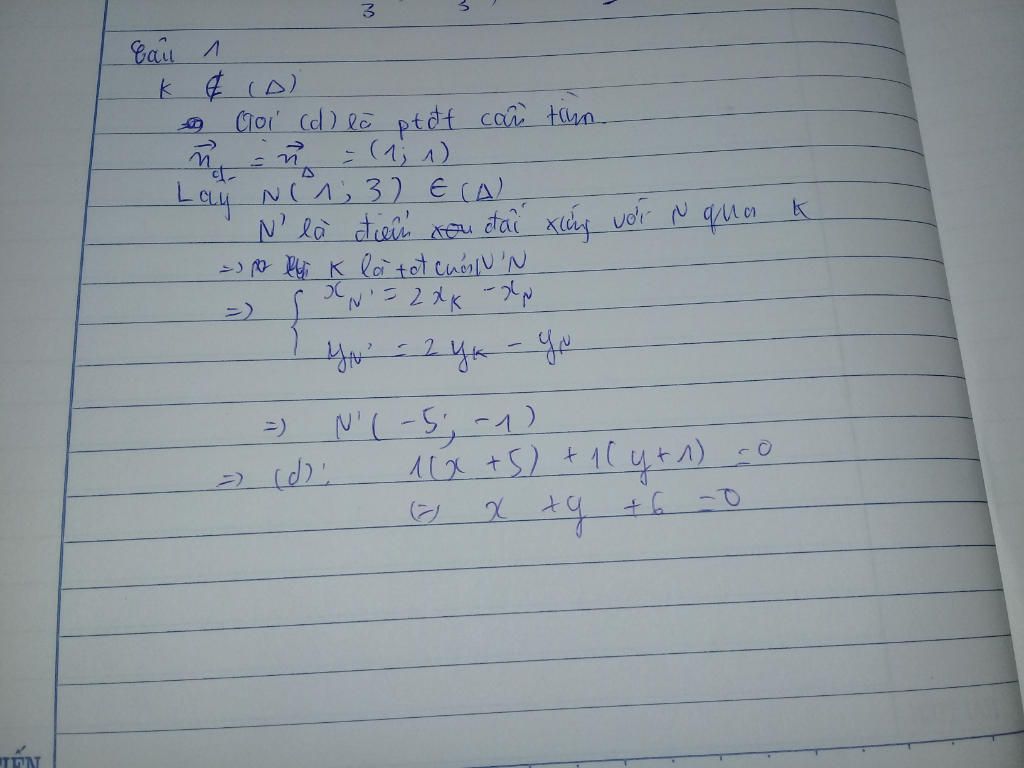 3 3
Câu 1
K ∉ (Δ)
Gọi (d) là ptđt cần tìm
n⃗d = n⃗Δ = (1; 1)
Lấy N(1; 3) ∈ (Δ)
N' là điểm đối xứng với N qua K
=> K là tđ của N'N
=> { xN' = 2xK - xN
yN' = 2yK - yN
=> N'(-5; -1)
=> (d): 1(x + 5) + 1(y + 1) = 0
<=> x + y + 6 = 0
TIẾN